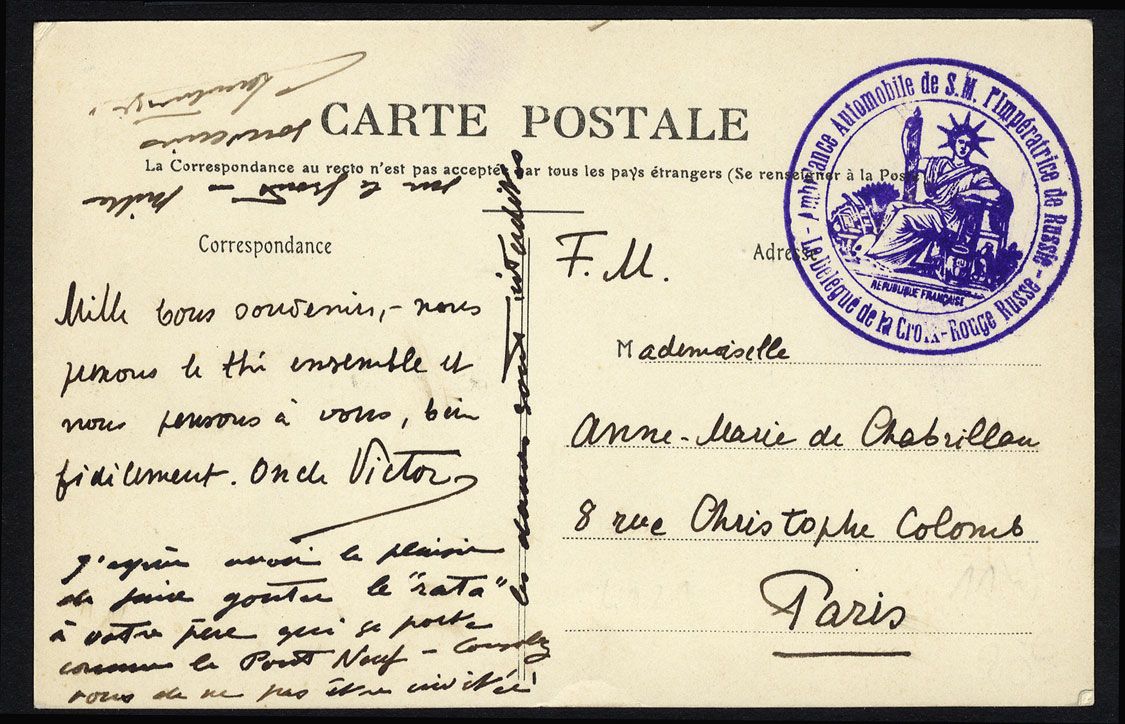 CARTE POSTALE
La Correspondance au recto n'est pas acceptée par tous les pays étrangers (Se renseigner à la Poste
Correspondance
Adresse
Ambulance Automobile de S. M. l'Impératrice de Russie -
Le Délégué de la Croix-Rouge Russe -
REPUBLIQUE FRANÇAISE
F. M.
Mademoiselle
Anne-Marie de Chabrillan
8 rue Christophe Colomb
Paris
Mille bons souvenirs, - nous
prenons le thé ensemble et
nous pensons à vous, bien
fidèlement. Oncle Victor
J'espère avoir le plaisir
de faire goûter le "rata"
à votre père qui se porte
comme le Pont Neuf - Consolez
vous de ne pas être invitée!
les dames sont interdites
sur le front - mille
souvenirs